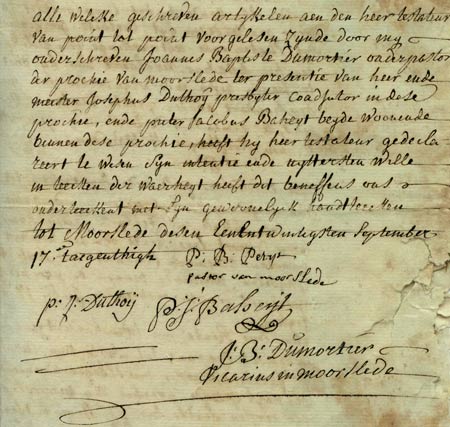 alle welke geschreven artykelen aen den heer testateur
van point tot point voorgelesen zynde door my
onderschreven Joannes Baptiste Dumortier onderpastor
der prochie van moorslede ter presentie van heer ende
meester Josephus Duthoÿ presbyter Coadjutor in dese
prochie, ende pieter Jacobus Baheyt beyde woonende
binnen dese prochie, heeft hy heer testateur gedecla
reert te wesen syn intentie ende uyttersten wille
in teecken der waerheyt heeft dit beneffens ons
onderteeckent met syn gewoonelyck handtteecken
tot Moorslede desen Eenentwintigsten September
17.
P: B:
pastor van moorslede
p: J: Duthoÿ P: J: Baheyt
J: B: Dumortier
Vicarius in moorslede